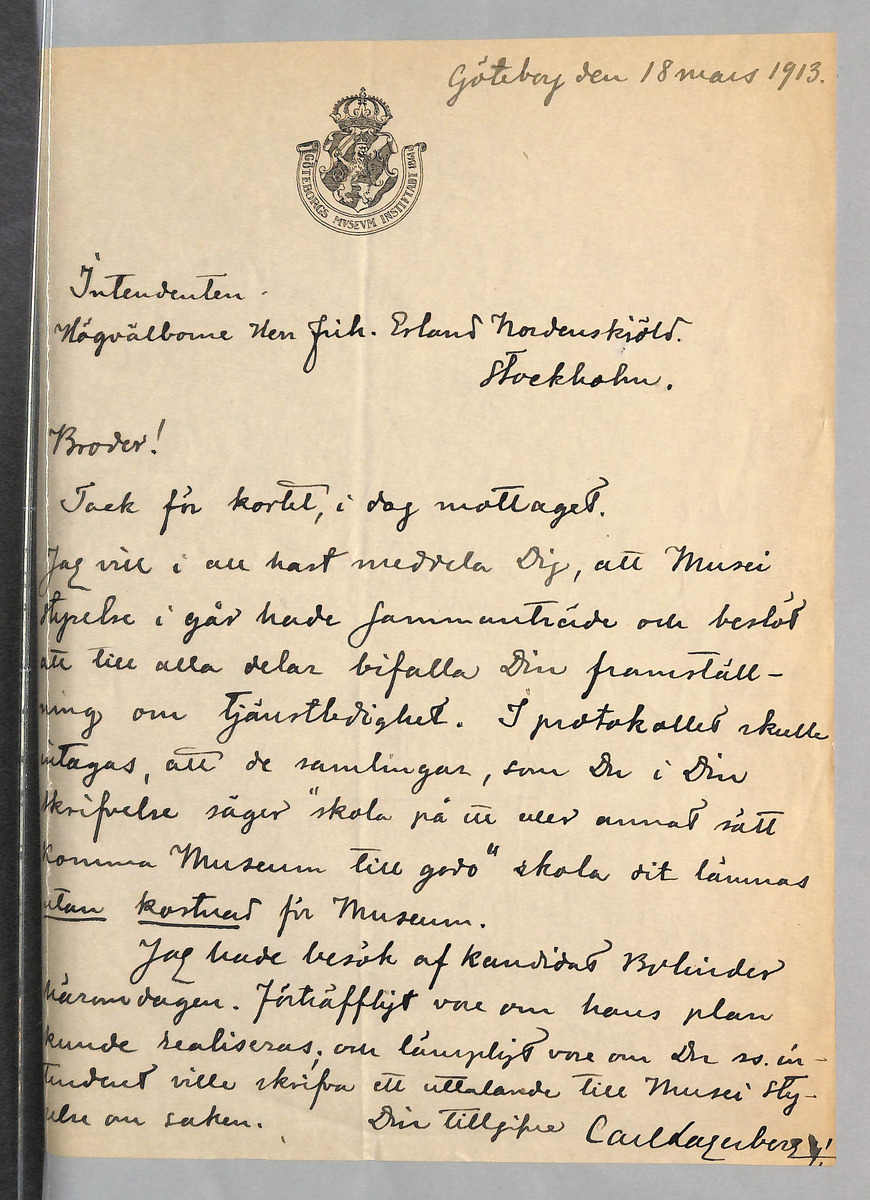 Göteborg den 18 mars 1913.
GÖTEBORGS MVSEVM INSTIFTADT 1861
Intendenten
Högvälborne Herr Frih. Erland Nordenskiöld.
Stockholm.
Broder!
Tack för kortet, i dag mottaget.
Jag vill i all hast meddela Dig, att Musei
styrelse i går hade sammanträde och beslöt
att till alla delar bifalla Din framställ-
ning om tjänstledighet. I protokollet skulle
intagas, att de samlingar, som Du i Din
skrifvelse säger "skola på ett eller annat sätt
komma Museum till godo" skola dit lämnas
utan kostnad för Museum.
Jag hade besök af Kandidat Bolinder
häromdagen. Förträffligt vore om hans plan
kunde realiseras, och lämpligt vore om Du ss. in-
tendent ville skrifva ett uttalande till Musei Sty-
relse om saken.
Din tillgifne Carl Lagerberg